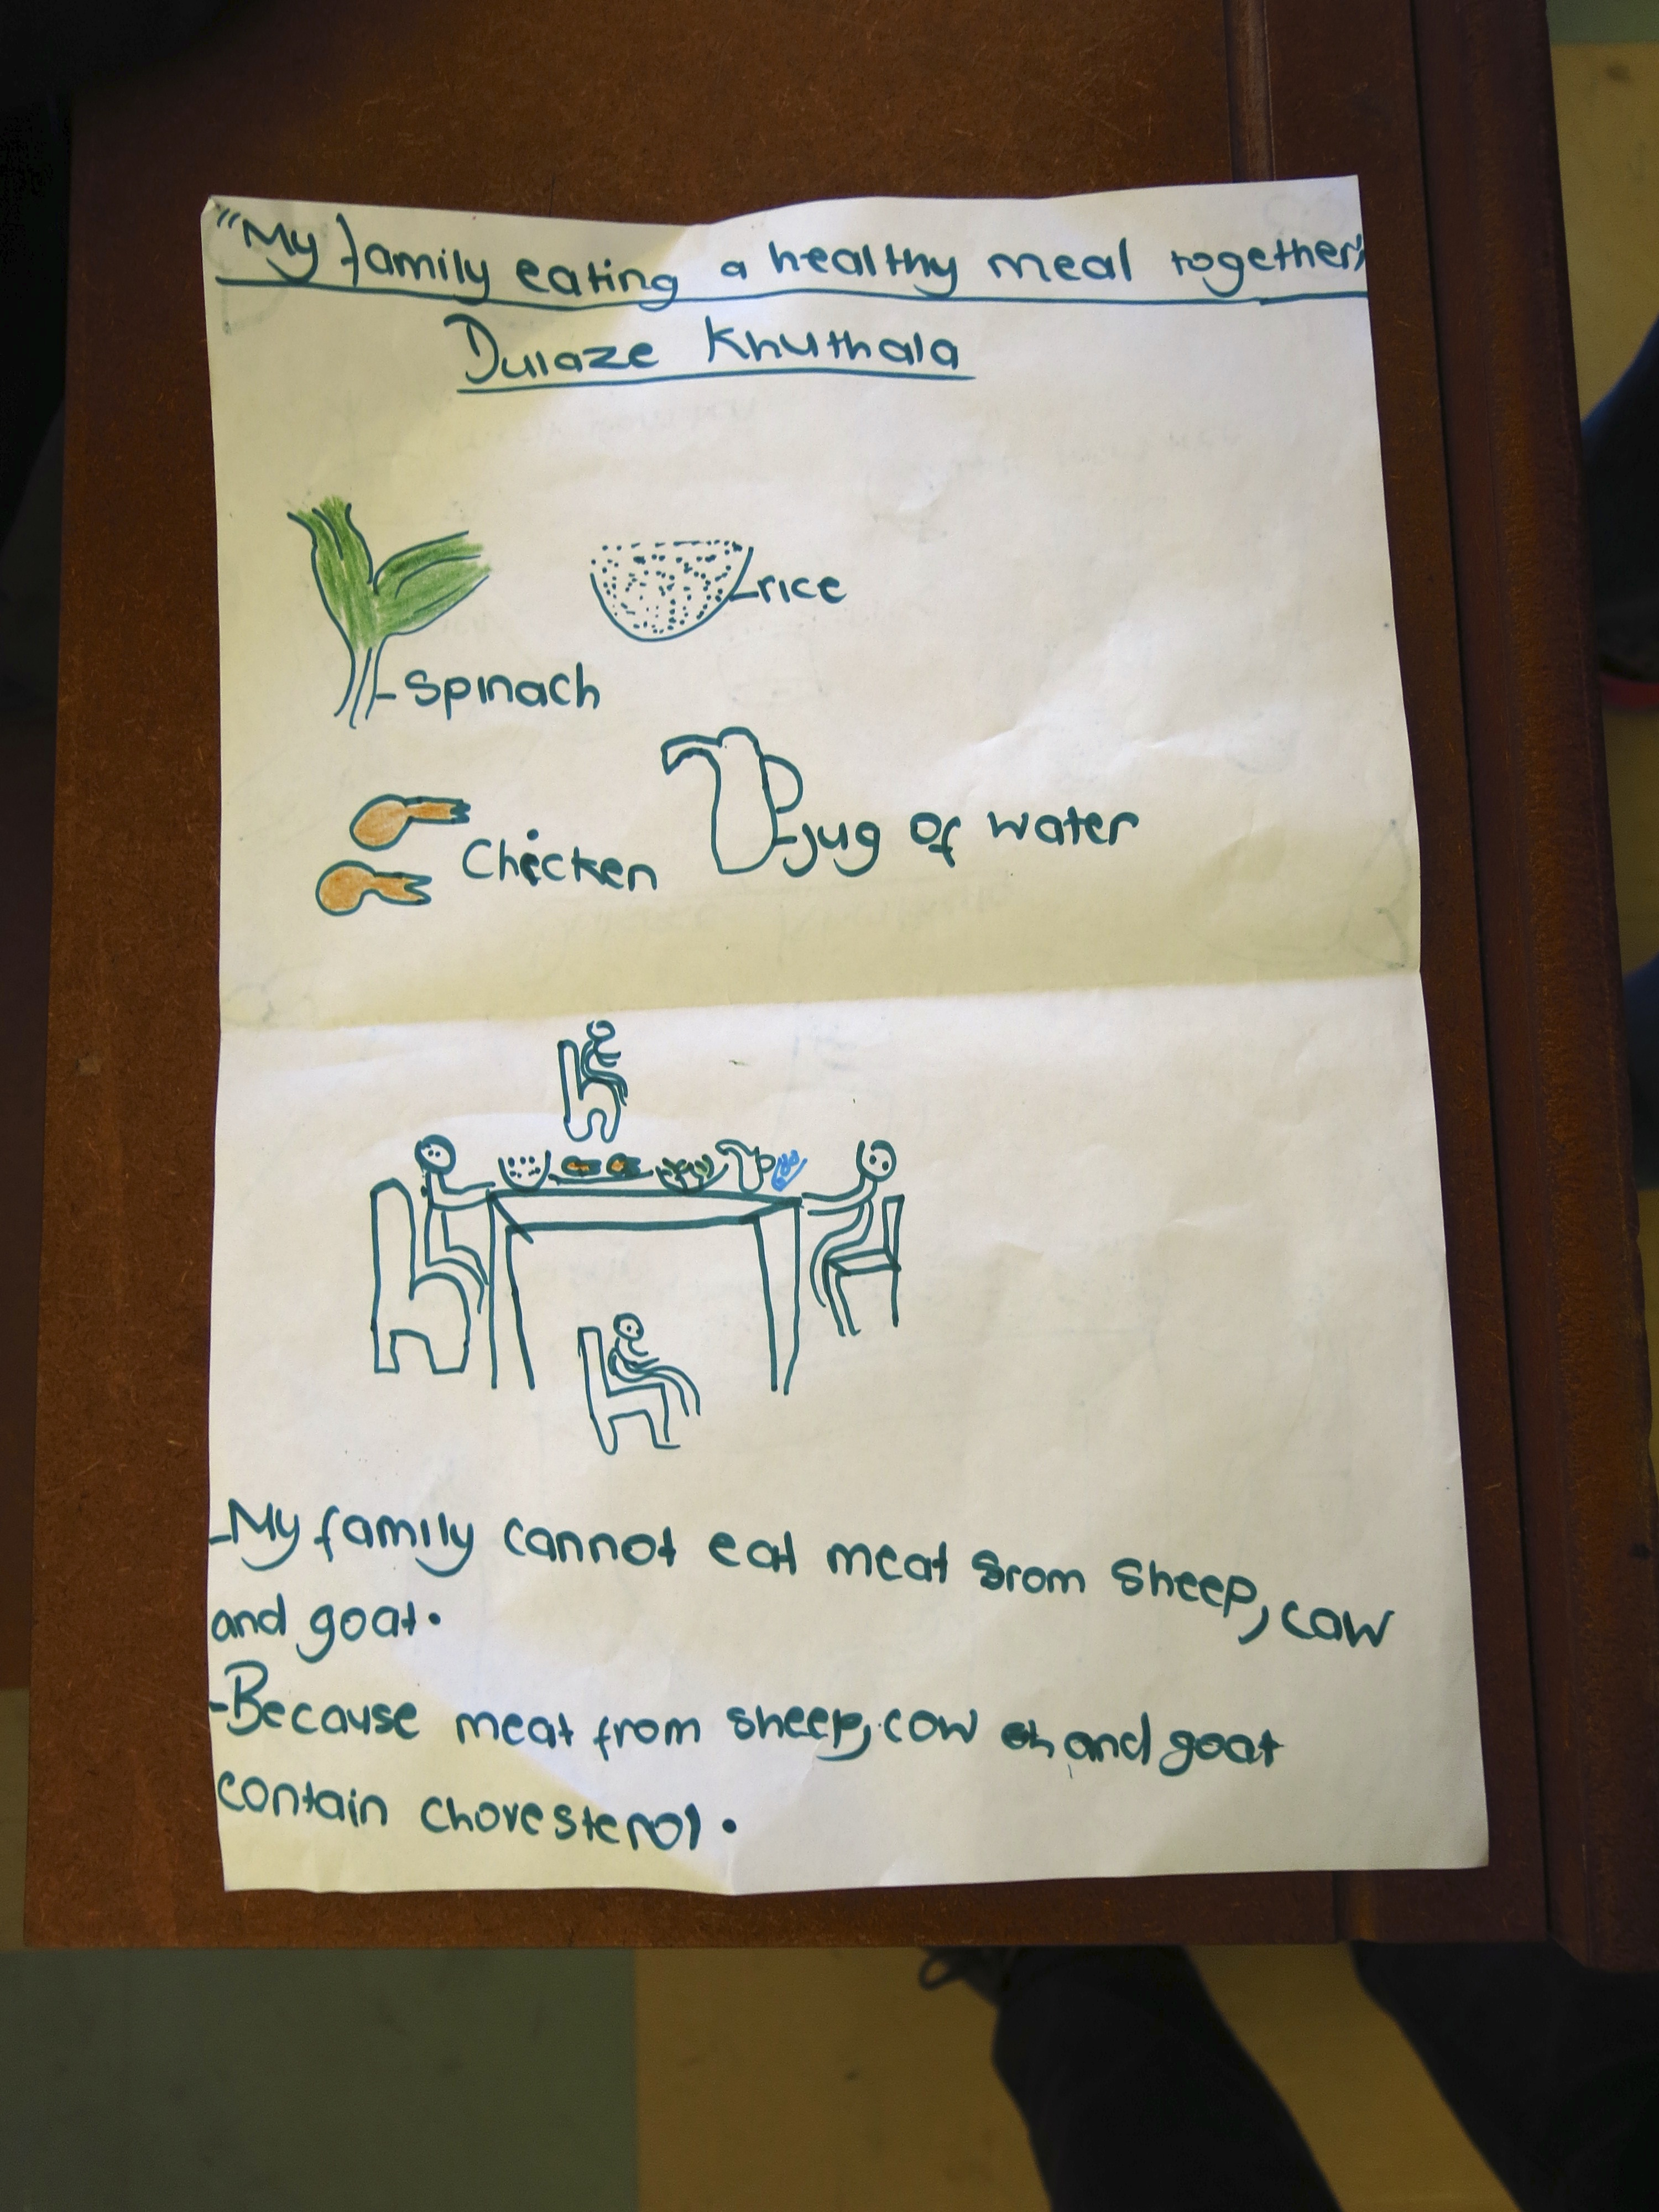 "My family eating a healthy meal together"
Dulaze Khuthala
rice
-Spinach
-jug of water
Chicken
-My family cannot eat meat srom sheep, cow
and goat.
-Because meat from sheep, cow and goat
contain chovesterol.